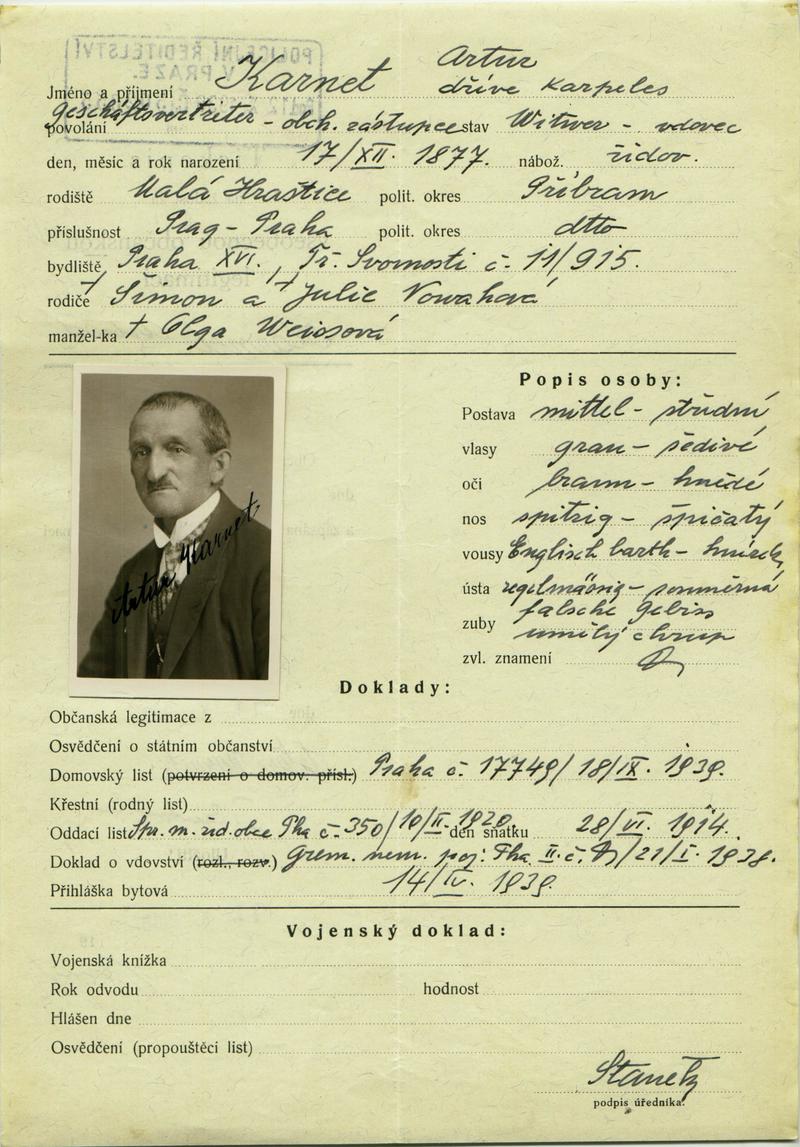 POLICEJNÍ ŘEDITELSTVÍ
V PRAZE.
Jméno a příjmení Karnet Artur
dříve Karpeles
povolání Geschäftsvertreter - obch. zástupce stav Witwer - vdovec
den, měsíc a rok narození 17/XII. 1877. nábož. židov.
rodiště Malá Hraštice polit. okres Příbram
příslušnost Prag - Praha polit. okres dtto
bydliště Praha XVI., Tř. Svornosti č. 11/915.
rodiče † Šimon a † Julie Nowaková
manžel-ka † Olga Weissová
Popis osoby:
Postava mittel - střední
vlasy grau - šedivé
oči braun - hnědé
nos spitzig - špičatý
vousy Englisch barth - knírek
ústa regelmässig - souměrná
zuby falsche Gebiss
umělý chrup
zvl. znamení
Artur Karnet
Doklady:
Občanská legitimace z
Osvědčení o státním občanství
Domovský list (potvrzení o domov. přísl.) Praha č. 17749/18/IX. 1939.
Křestní (rodný list)
Oddací list Spr. m. úd. obce Pha č. 350/10/II. 1920. den sňatku 28/VI. 1914.
Doklad o vdovství (rozl., rozv.) Grem. nem. poj. Pha II. č. /21/I. 1938.
Přihláška bytová 14/IV. 1939.
Vojenský doklad:
Vojenská knížka
Rok odvodu hodnost
Hlášen dne
Osvědčení (propouštěcí list)
podpis úředníka.